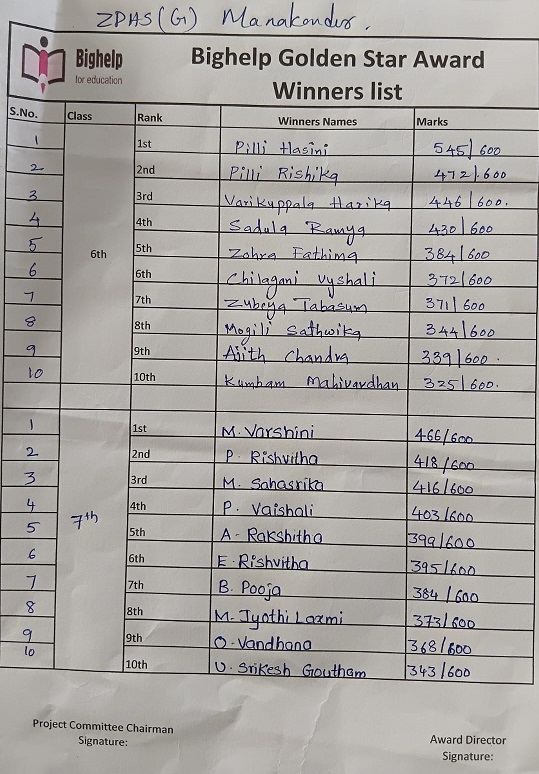 ZPHS(G) Manakondur.
Bighelp
for education
Bighelp Golden Star Award
Winners list
S.No. Class Rank Winners Names Marks
1 1st Pilli Hasini 545/600
2 2nd Pilli Rishika 472/600
3 3rd Varikuppala Harika 446/600.
4 4th Sadula Ramya 430/600
5 5th Zohra Fathima 384/600
6 6th 6th Chilagani Vyshali 372/600
7 7th Zubeya Tabasum 371/600
8 8th Mogili Sathwika 344/600
9 9th Ajith Chandra 339/600.
10 10th Kumbam Mahivardhan 325/600.
1 1st M. Varshini 466/600
2 2nd P. Rishvitha 418/600
3 3rd M. Sahasrika 416/600
4 7th 4th P. Vaishali 403/600
5 5th A. Rakshitha 399/600
6 6th E. Rishvitha 395/600
7 7th B. Pooja 384/600
8 8th M. Jyothi Laxmi 373/600
9 9th O. Vandhana 368/600
10 10th U. Srikesh Goutham 343/600
Project Committee Chairman
Signature:
Award Director
Signature: